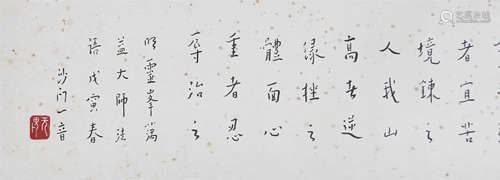 者宜苦
境鍊之
人我山
高者逆
緣挫之
體面心
重者忍
辱治之
明靈峯蕅
益大師法
語戊寅春
沙門一音